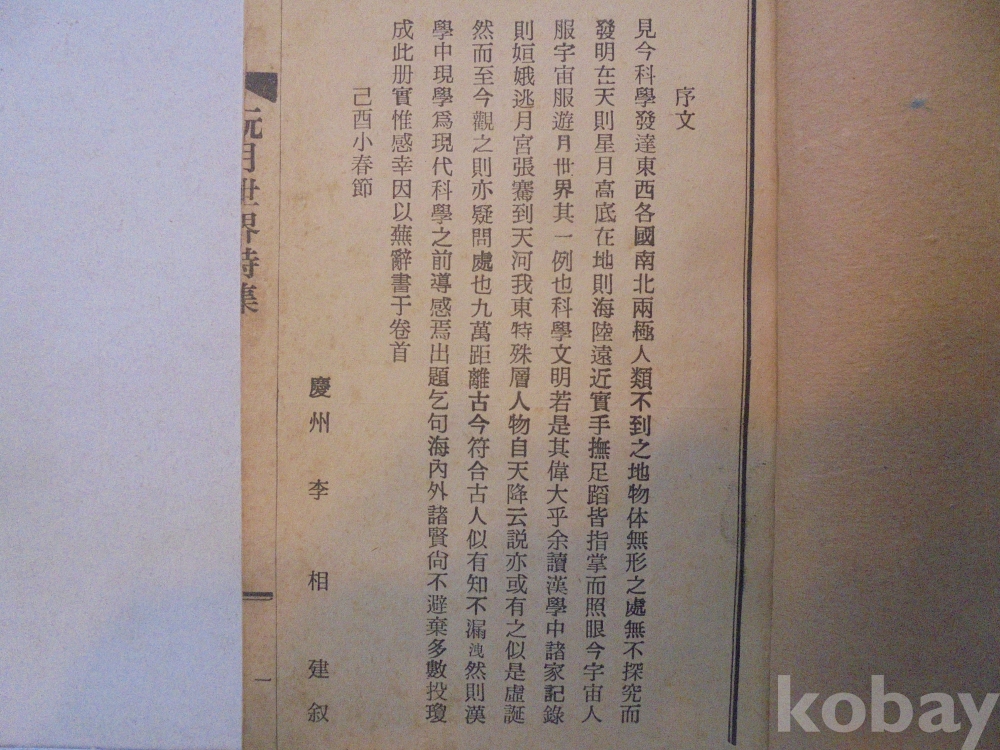 序文
見今科學發達東西各國南北兩極人類不到之地物体無形之處無不探究而
發明在天則星月高底在地則海陸遠近實手撫足蹈皆指掌而照眼今宇宙人
服宇宙服遊月世界其一例也科學文明若是其偉大乎余讀漢學中諸家記錄
則姮娥逃月宮張騫到天河我東特殊層人物自天降云説亦或有之似是虛誕
然而至今觀之則亦疑問處也九萬距離古今符合古人似有知不漏洩然則漢
學中現學爲現代科學之前導感焉出題乞句海內外諸賢尙不避棄多數投瓊
成此册實惟感幸因以蕪辭書于卷首
己酉小春節
慶州 李 相 建 叙
玩月世界詩集
一
kobay